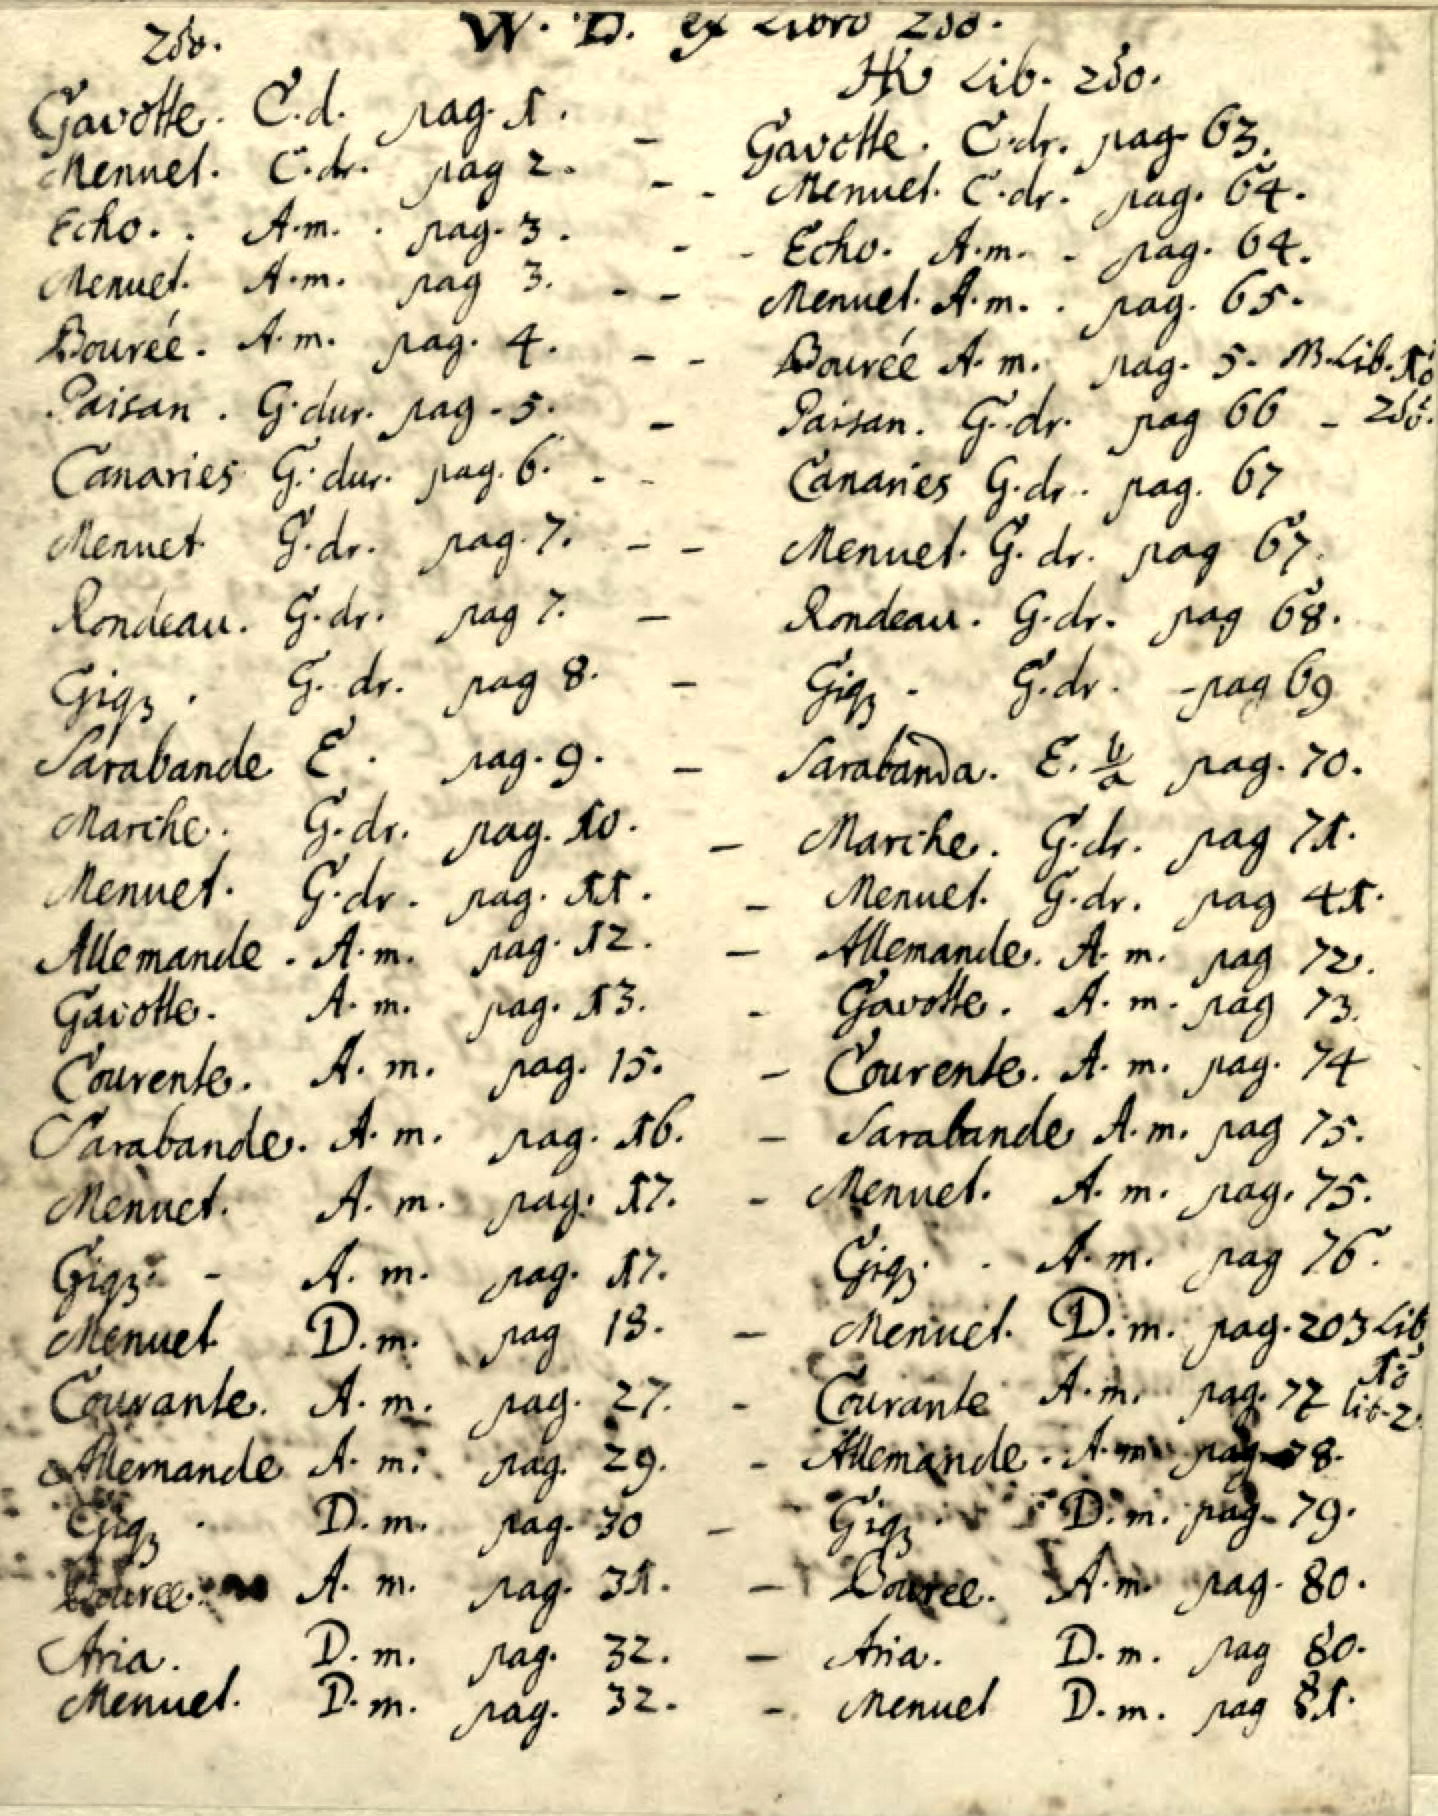 W. D. ex Libro 2do.
2do. HK Lib. 2do.
Gavotte. C.d. pag. 1. – Gavotte. C.dr. pag. 63.
Menuet. C.dr. pag 2. – - Menuet. C.dr. pag. 64.
Echo. . A.m. . pag. 3. - - Echo. A.m. - pag. 64.
Menuet. A.m. pag 3. - – Menuet. A.m. . pag. 65.
Bourée. A.m. pag. 4. – - Bourée A.m. pag. 5. NB. Lib. 1o
Paisan. G.dur. pag. 5. – Paisan. G.dr. pag 66 – 2do.
Canaries G.dur. pag. 6. - - Canaries G.dr. pag. 67
Menuet G.dr. pag. 7. – – Menuet. G.dr. pag 67.
Rondeau. G.dr. pag 7. – Rondeau. G.dr. pag 68.
Giqȝ. G.dr. pag 8. – Giqȝ - G.dr. - pag 69
Sarabande E. pag. 9. – Sarabanda. E. b/a pag. 70.
Marche. G.dr. pag. 10. – Marche. G.dr. pag 71.
Menuet. G.dr. pag. 11. – Menuet. G.dr. pag 41.
Allemande. A.m. pag. 12. – Allemande. A.m. pag 72.
Gavotte. A.m. pag. 13. - Gavotte. A.m. pag 73.
Courente. A.m. pag. 15. – Courente. A.m. pag. 74
Sarabande. A.m. pag. 16. – Sarabande A.m. pag 75.
Menuet. A.m. pag. 17. - Menuet. A.m. pag. 75.
Giqȝ. - A.m. pag. 17. Giqȝ. - A.m. pag 76.
Menuet D.m. pag 18. – Menuet. D.m. pag. 203 Lib. 1o
Courante. A.m. pag. 27. - Courante A.m. pag. 77 lib. 2.
Allemande A.m. pag. 29. - Allemande. A.m. pag. 78.
Giqȝ . D.m. pag. 30 – Giqȝ . D.m. pag. 79.
Bouree. A.m. pag. 31. – Bouree. A.m. pag. 80.
Aria. D.m. pag. 32. – Aria. D.m. pag 80.
Menuet. D.m. pag. 32. -. Menuet D.m. pag 81.